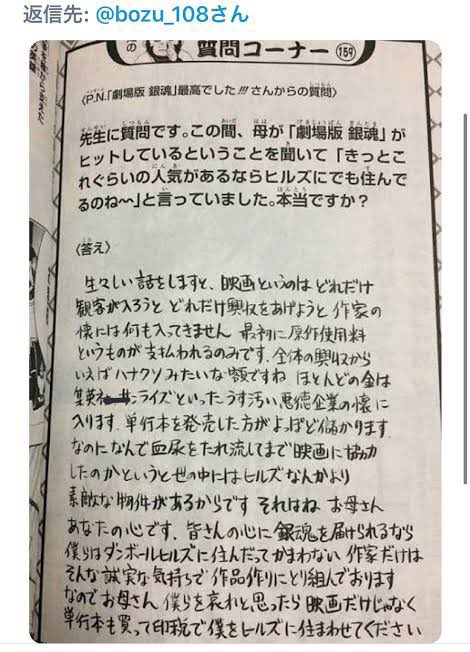 返信先: @bozu_108さん
の
質問コーナー 159
〈P.N.「劇場版 銀魂」最高でした!!!さんからの質問〉
先生に質問です。この間、母が「劇場版 銀魂」が
ヒットしているということを聞いて「きっとこ
れぐらいの人気があるならヒルズにでも住んで
るのね〜」と言っていました。本当ですか？
〈答え〉
生々しい話をしますと、映画というのは どれだけ
観客が入ろうと どれだけ興収をあげようと 作家の
懐には何も入ってきません 最初に原作使用料
というものが支払われるのみです. 全体の興収から
いえばハナクソみたいな額ですね ほとんどの金は
集英社 サンライズといったうす汚い悪徳企業の懐に
入ります. 単行本を発売した方がよっぽど儲かります
なのになんで血尿をたれ流してまで映画に協力
したのかというと世の中にはヒルズなんかより
素敵な物件があるからです それはね お母さん
あなたの心です. 皆さんの心に銀魂を届けられるなら
僕らはダンボールヒルズに住んだってかまわない 作家だけは
そんな誠実な気持ちで作品作りにとり組んでおります
なのでお母さん 僕らを哀れと思ったら映画だけじゃなく
単行本も買って印税で僕をヒルズに住まわせてください